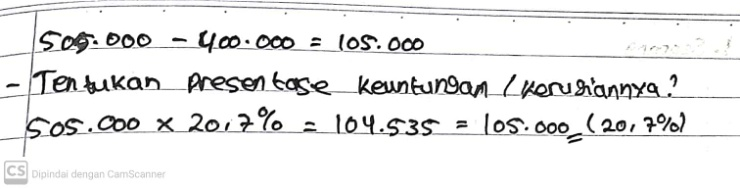 505.000 - 400.000 = 105.000
- Tentukan presentase keuntungan / kerugiannya?
505.000 x 20,7% = 104.535 = 105.000 (20,7%)
CS Dipindai dengan CamScanner